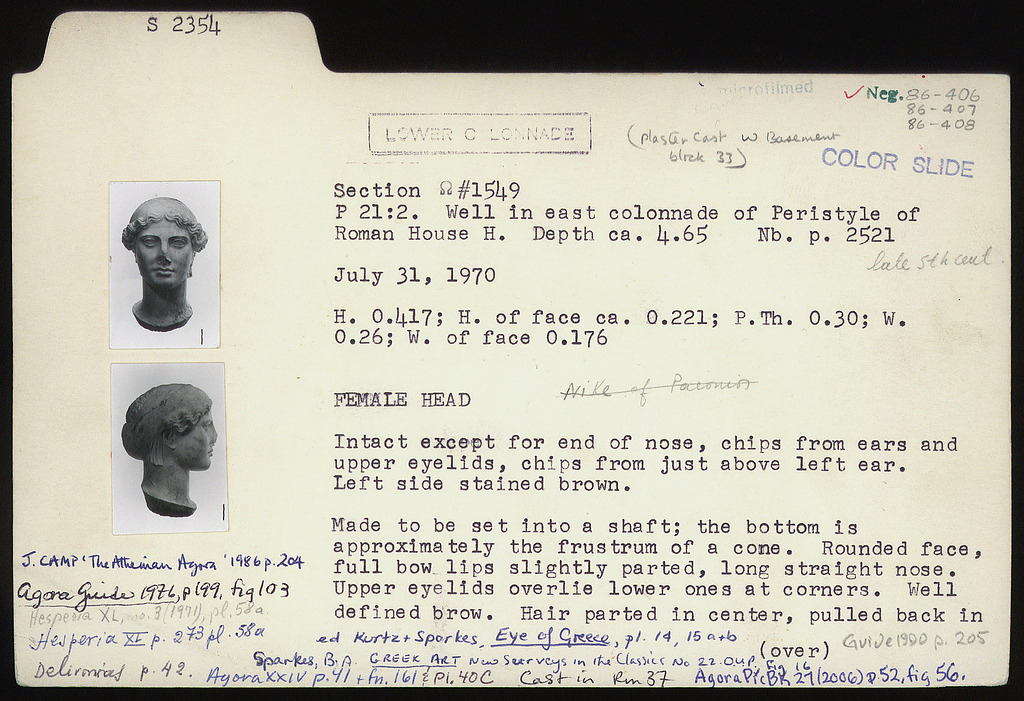 S 2354
microfilmed
✓ Neg. 86-406
86-407
86-408
LOWER C LONNADE
(plaster cast W Basement
block 33)
COLOR SLIDE
Section Ω #1549
P 21:2. Well in east colonnade of Peristyle of
Roman House H. Depth ca. 4.65 Nb. p. 2521
late 5th cent.
July 31, 1970
H. 0.417; H. of face ca. 0.221; P.Th. 0.30; W.
0.26; W. of face 0.176
FEMALE HEAD
Nike of Paionios
Intact except for end of nose, chips from ears and
upper eyelids, chips from just above left ear.
Left side stained brown.
Made to be set into a shaft; the bottom is
approximately the frustrum of a cone. Rounded face,
full bow lips slightly parted, long straight nose.
Upper eyelids overlie lower ones at corners. Well
defined brow. Hair parted in center, pulled back in
(over)
J. CAMP 'The Athenian Agora' 1986 p. 204
Agora Guide 1976, p 199, fig 103
Hesperia XL, no. 3 (1971), pl. 58a
Hesperia XL p. 273 pl. 58a
ed Kurtz + Sparkes, Eye of Greece, pl. 14, 15 a+b
Guide 1990 p. 205
Sparkes, B.A. GREEK ART New Surveys in the Classics No 22. O.U.P, Fig 16
Delivorrias p. 42.
Agora XXIV p. 41 + fn. 161 & Pl. 40C
Cast in Rm 37
AgoraPicBk 27 (2006) p. 52, fig 56.